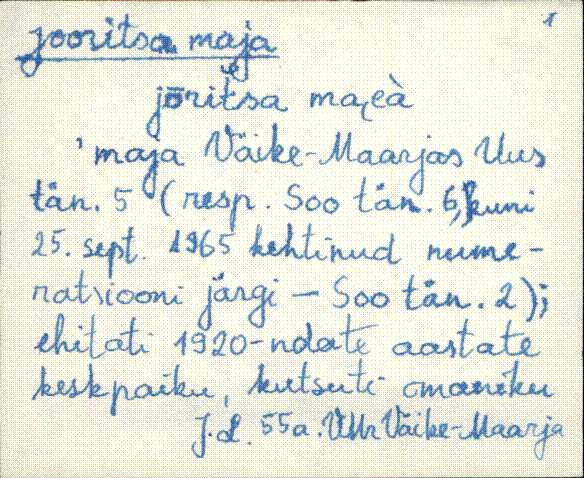 1
jooritsa maja
jōritsa ma(eà
'maja Väike-Maarjas Uus
tän. 5 (resp. Soo tän. 6, kuni
25. sept. 1965 kehtinud nume-
ratsiooni järgi – Soo tän. 2);
ehitati 1920-ndate aastate
keskpaiku, kutsuti omaniku
J. L. 55a. VMr Väike-Maarja